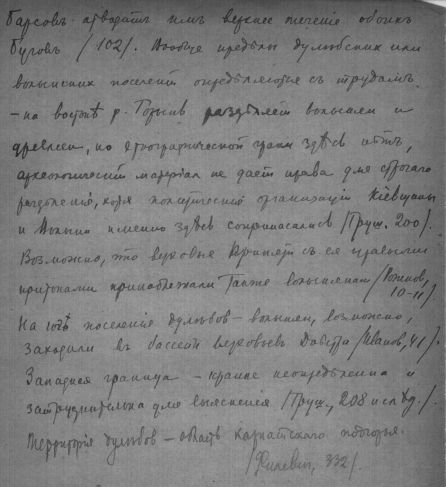 Барсовъ отводитъ имъ верхнее теченіе обоихъ
Буговъ /102/. Вообще предѣлы дулѣбскихъ или
волынскихъ поселеній опредѣляются съ трудомъ
- на востокѣ р. Горынь раздѣляетъ волынянъ и
древлянъ, но этнографической грани здѣсь нѣтъ,
археологическій матеріалъ не даетъ права для строгаго
разделенія, хотя политическія организаціи Кіевщины
и Волыни именно здѣсь соприкасались /Груш. 200/.
Возможно, что верховье Припяти съ ея правыми
притоками принадлежали также волынянамъ /
10-11/.
На югѣ поселенія дулѣбовъ - волынянъ, возможно,
заходили въ бассейнъ верховьевъ Днѣстра /Иванов, 41/.
Западная граница - крайне неопредѣленна и
затруднительна для выясненія /Груш., 208 и слѣд./.
Территорія дулѣбовъ - область Карпатскаго подгорья.
/Филевич, 332/.